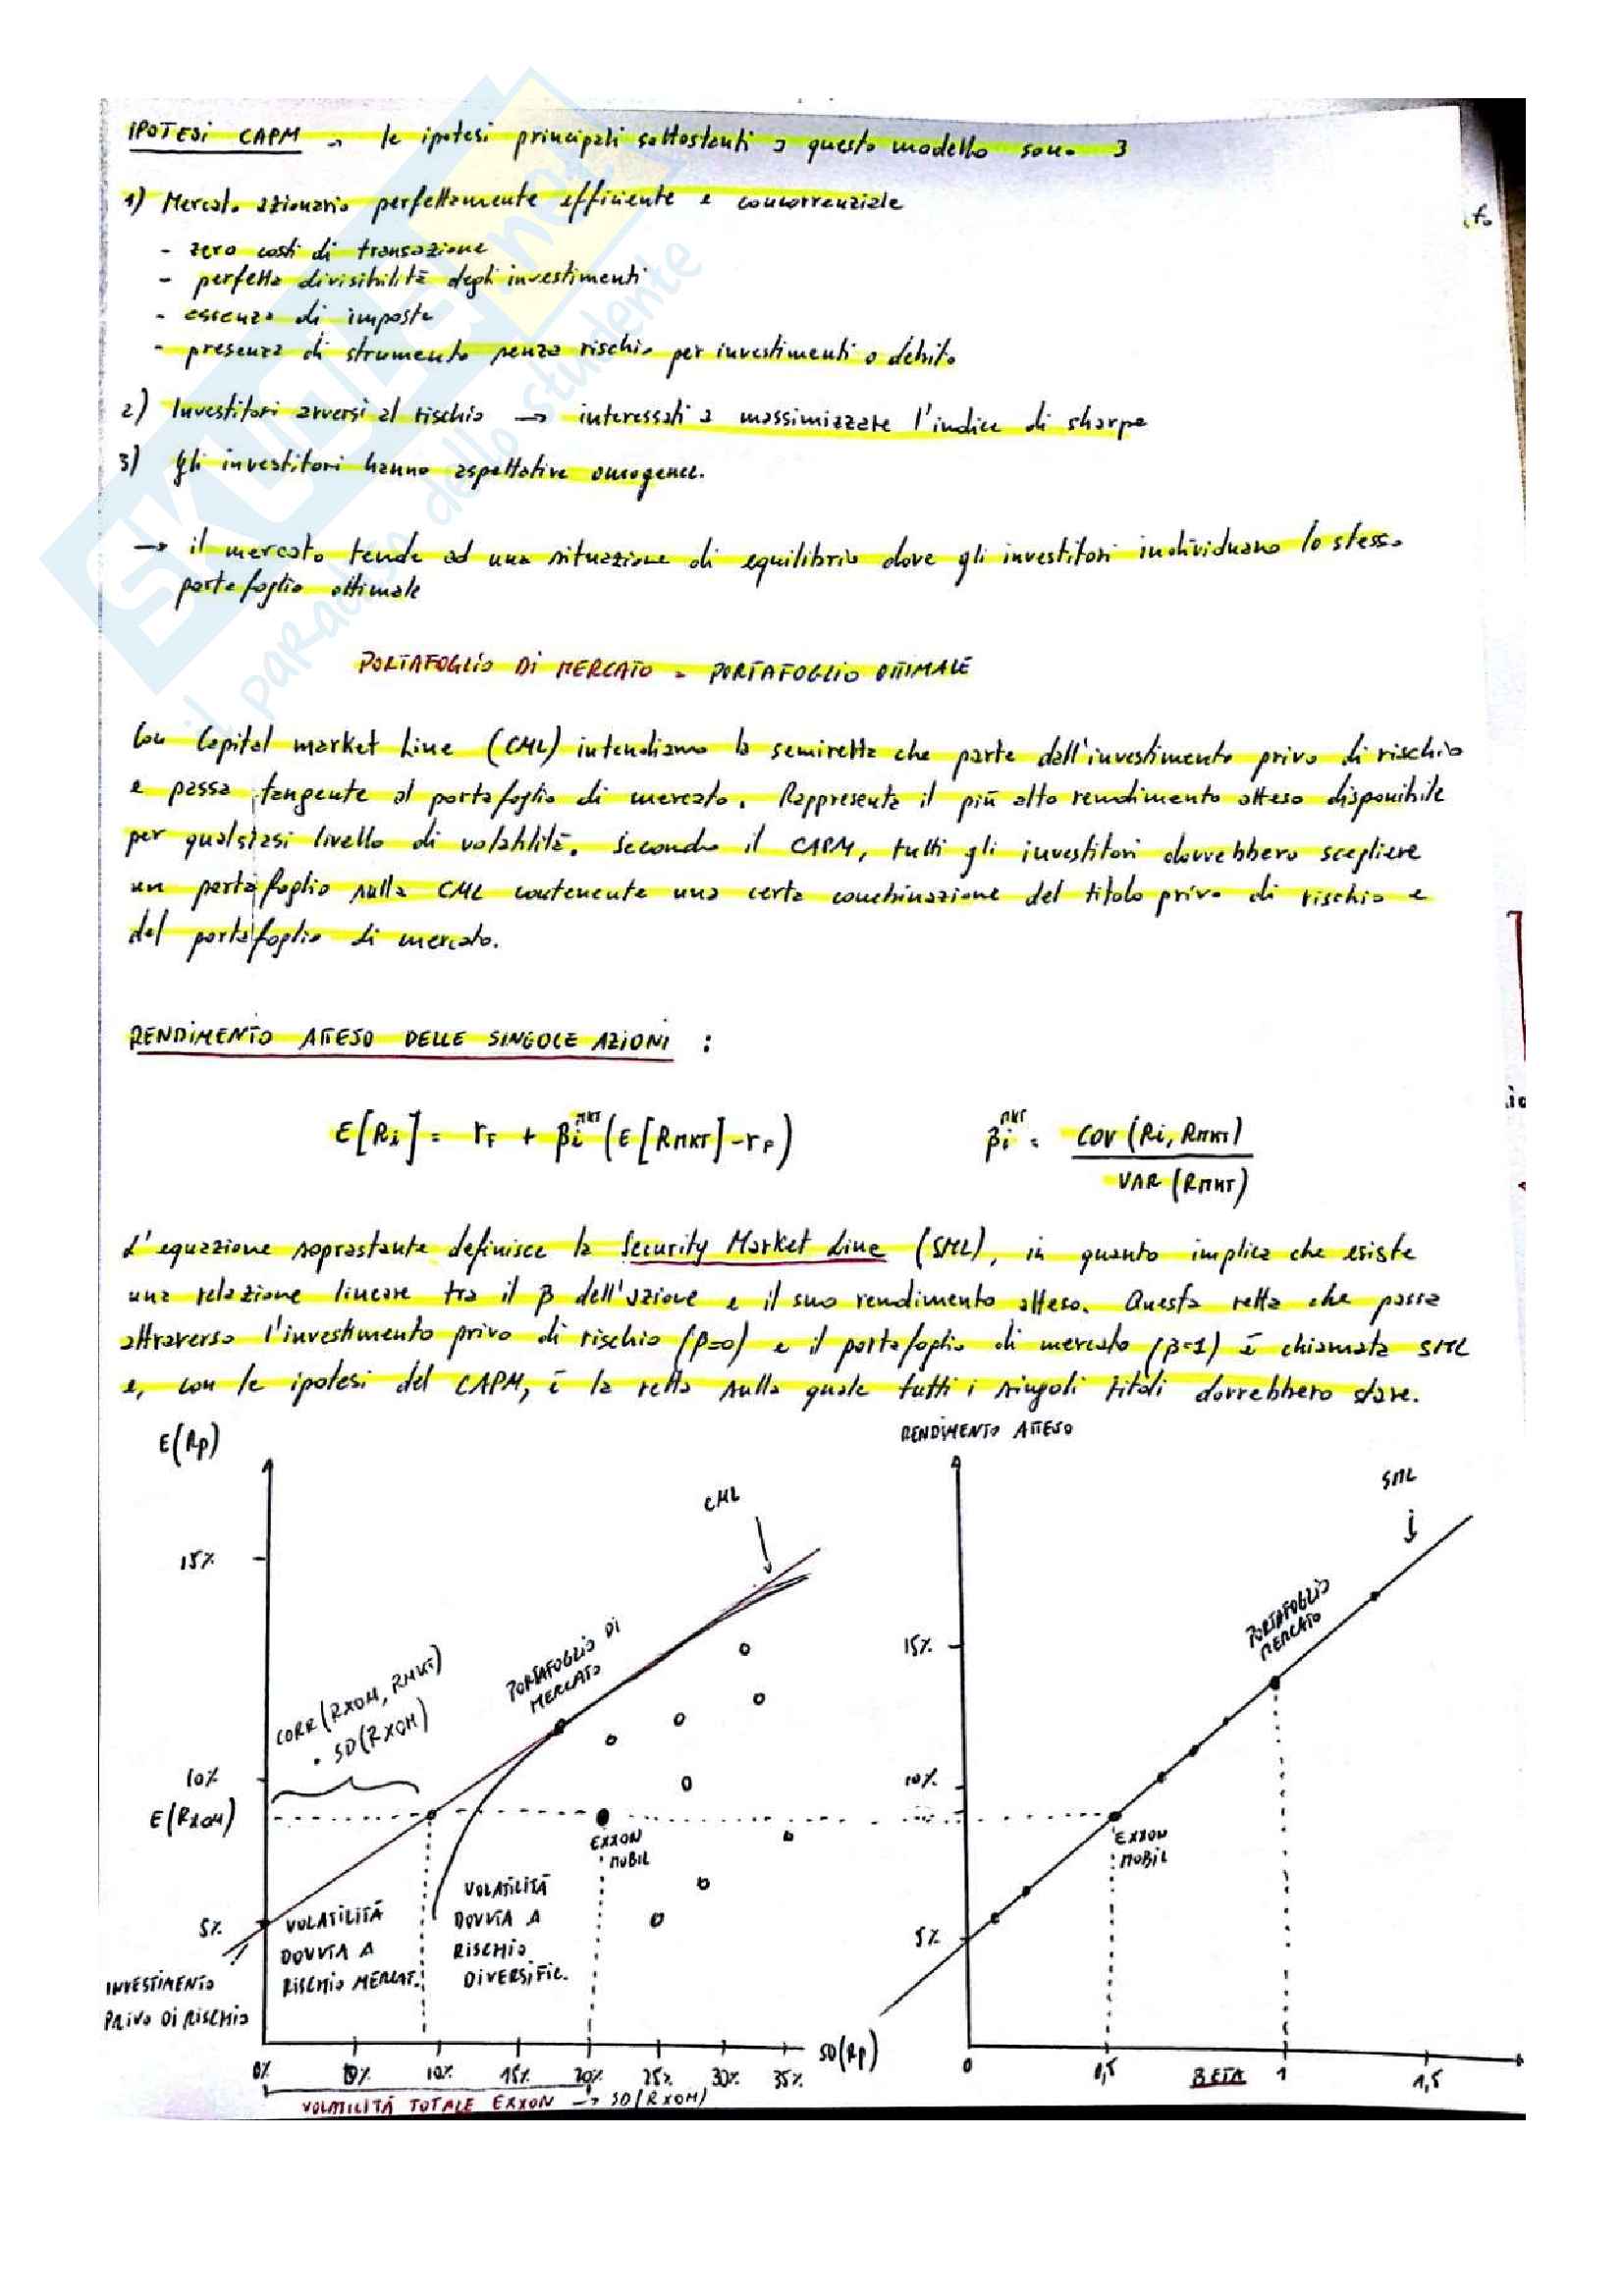 IPOTESI CAPM → le ipotesi principali sottostanti a questo modello sono 3
1) Mercato azionario perfettamente efficiente e concorrenziale
- zero costi di transazione
- perfetta divisibilità degli investimenti
- assenza di imposte
- presenza di strumento senza rischio per investimenti o debito
2) Investitori avversi al rischio → interessati a massimizzare l'indice di sharpe
3) Gli investitori hanno aspettative omogenee.
→ il mercato tende ad una situazione di equilibrio dove gli investitori individuano lo stesso
portafoglio ottimale
PORTAFOGLIO DI MERCATO = PORTAFOGLIO OTTIMALE
Con Capital market Line (CML) intendiamo la semiretta che parte dall'investimento privo di rischio
e passa tangente al portafoglio di mercato. Rappresenta il più alto rendimento atteso disponibile
per qualsiasi livello di volatilità. Secondo il CAPM, tutti gli investitori dovrebbero scegliere
un portafoglio sulla CML contenente una certa combinazione del titolo privo di rischio e
del portafoglio di mercato.
RENDIMENTO ATTESO DELLE SINGOLE AZIONI :
E[Ri] = rF + βi^MKT (E[RMKT] - rF)
βi^MKT = COV (Ri, RMKT) / VAR (RMKT)
L'equazione soprastante definisce la Security Market Line (SML), in quanto implica che esiste
una relazione lineare tra il β dell'azione e il suo rendimento atteso. Questa retta che passa
attraverso l'investimento privo di rischio (β=0) e il portafoglio di mercato (β=1) è chiamata SML
e, con le ipotesi del CAPM, è la retta sulla quale tutti i singoli titoli dovrebbero stare.
E(Rp)
15%
10%
E(RXOM)
5%
INVESTIMENTO
PRIVO DI RISCHIO
CML
PORTAFOGLIO DI
MERCATO
CORR(RXOM, RMKT)
· SD(RXOM)
EXXON
MOBIL
VOLATILITÀ
DOVUTA A
RISCHIO MERCAT.
VOLATILITÀ
DOVUTA A
RISCHIO
DIVERSIFIC.
0% 10% 15% 20% 25% 30% 35%
SD(Rp)
VOLATILITÀ TOTALE EXXON → SD(RXOM)
RENDIMENTO ATTESO
SML
PORTAFOGLIO
MERCATO
15%
10%
5%
EXXON
MOBIL
0 0,5 BETA 1 1,5
SKUOLA.net
il paradiso dello studente